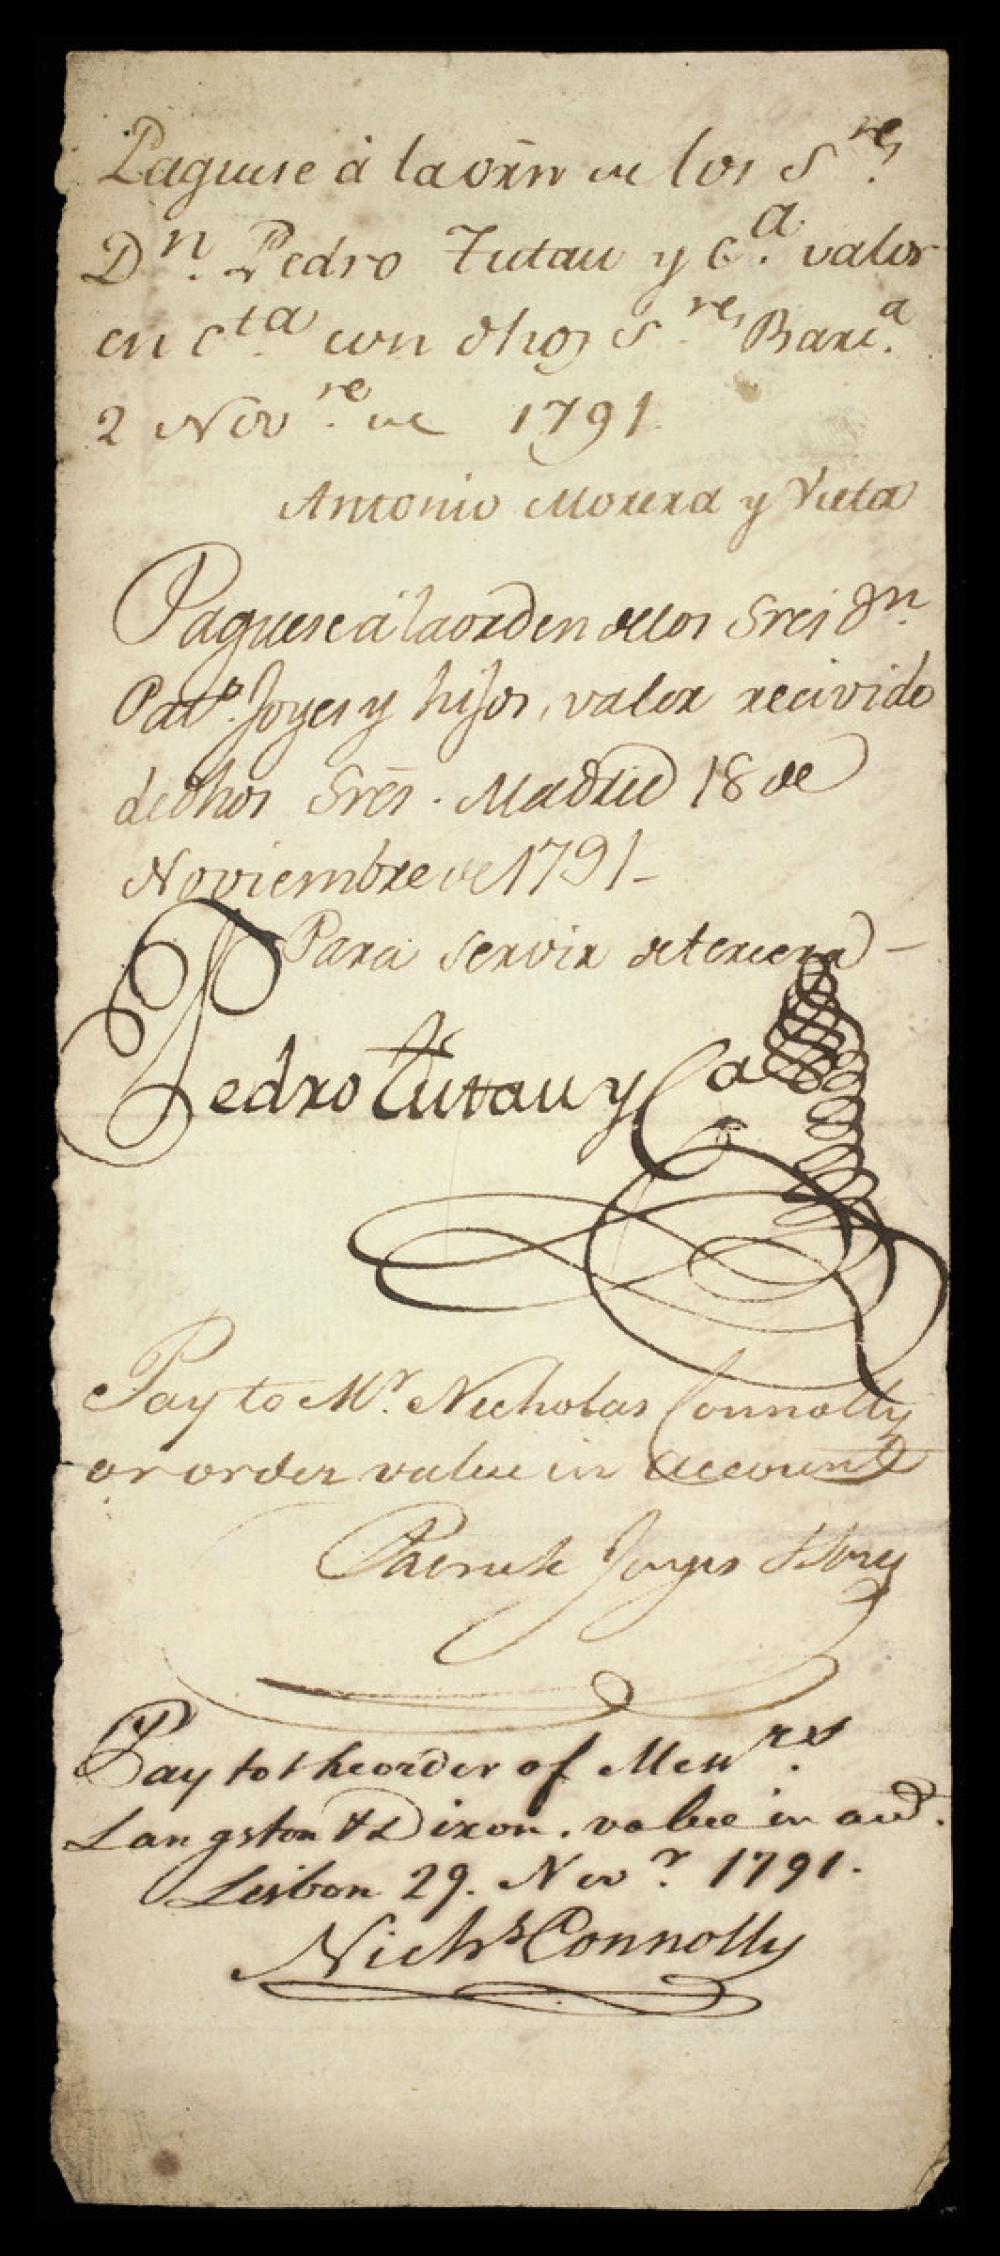 Paguese à la orñ de los S.res
D.n Pedro Tutau y C.a valor
en c.ta con dhos S.res Barc.a
2 Nov.re de 1791.
Antonio Morera y Vieta
Paguese a la orden de los Sres Dn.
Pat.o Joyes y hijos, valor recivido
de dhos Sres. Madrid 18 de
Noviembre de 1791_
Para servir de tercera
Pedro Tutau y Ca
Pay to Mr. Nicholas Connolly
or order value in account
Patrick Joyes & Sons
Pay to the order of Messrs.
Langston & Dixon. value in acct.
Lisbon 29. Novr. 1791.
Nichs Connolly